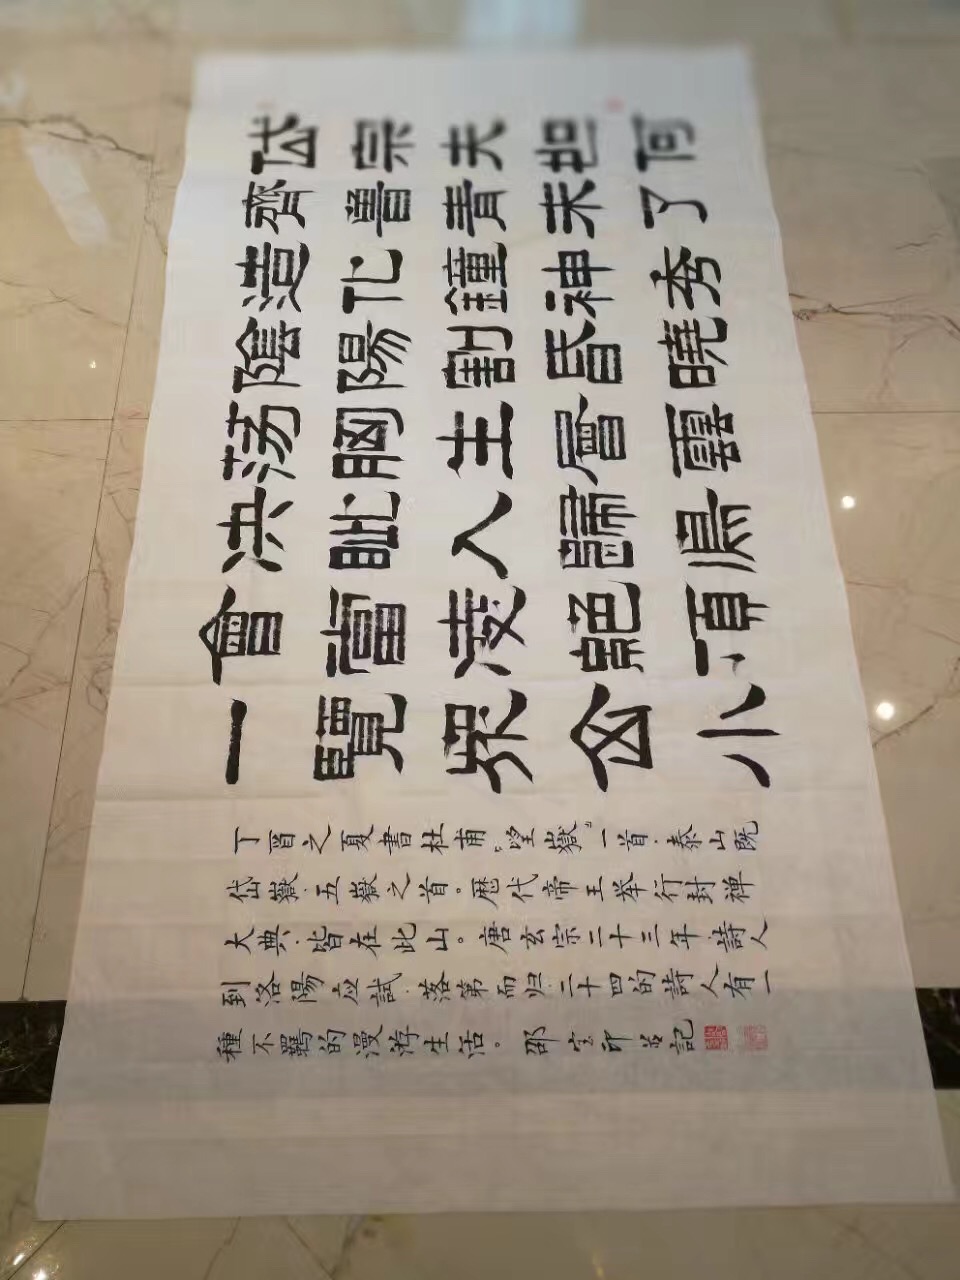 岱宗夫如何
齊魯青未了
造化鐘神秀
陰陽割昏曉
蕩胸生層雲
決眦入歸鳥
會當淩絕頂
一覽眾山小
丁酉之夏書杜甫《望嶽》一首·泰山既
岱嶽·五嶽之首。歴代帝王举行封禅
大典·皆在此山。唐玄宗二十三年·詩人
到洛陽应試·落第而归·二十四的詩人有一
種不羈的漫游生活。邵宝印並記